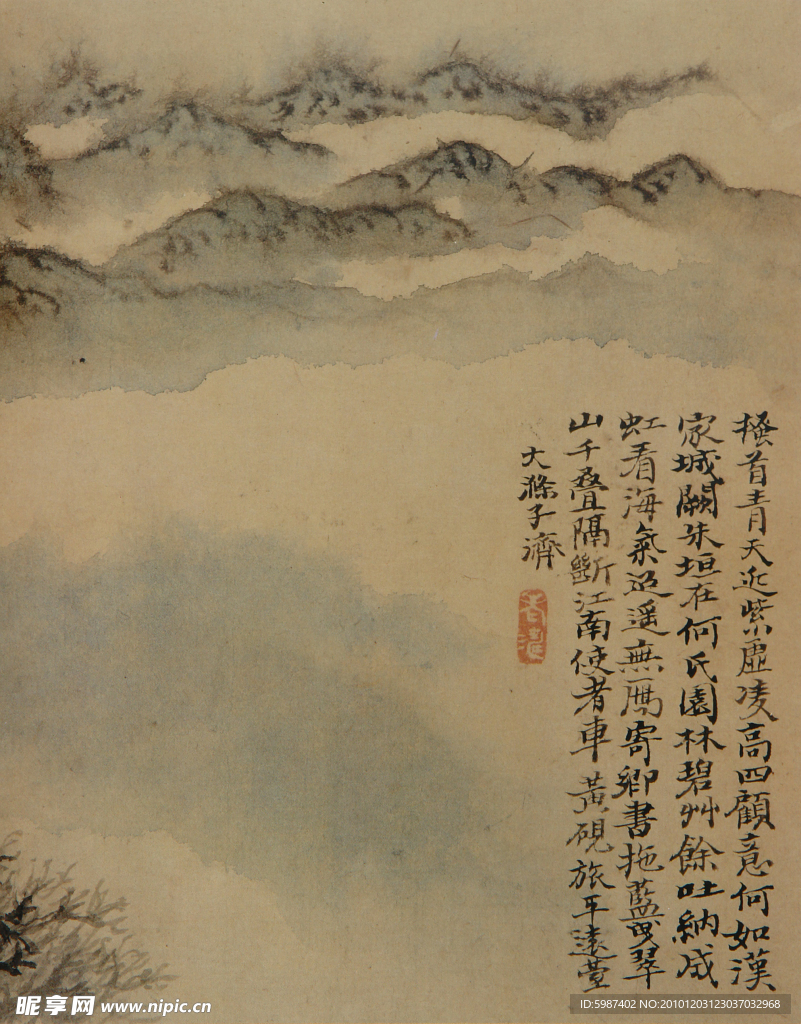 搔首青天近紫虛凌高四顧意何如漢
家城闕朱垣在何氏園林碧艸餘吐納成
虹看海氣迢遥無鴈寄卿書拖藍曳翠
山千叠隔斷江南使者車 黃硯旅平遠臺
大滌子濟
老濤
昵享网 www.nipic.cn
ID:5987402 NO:20101203123037032968